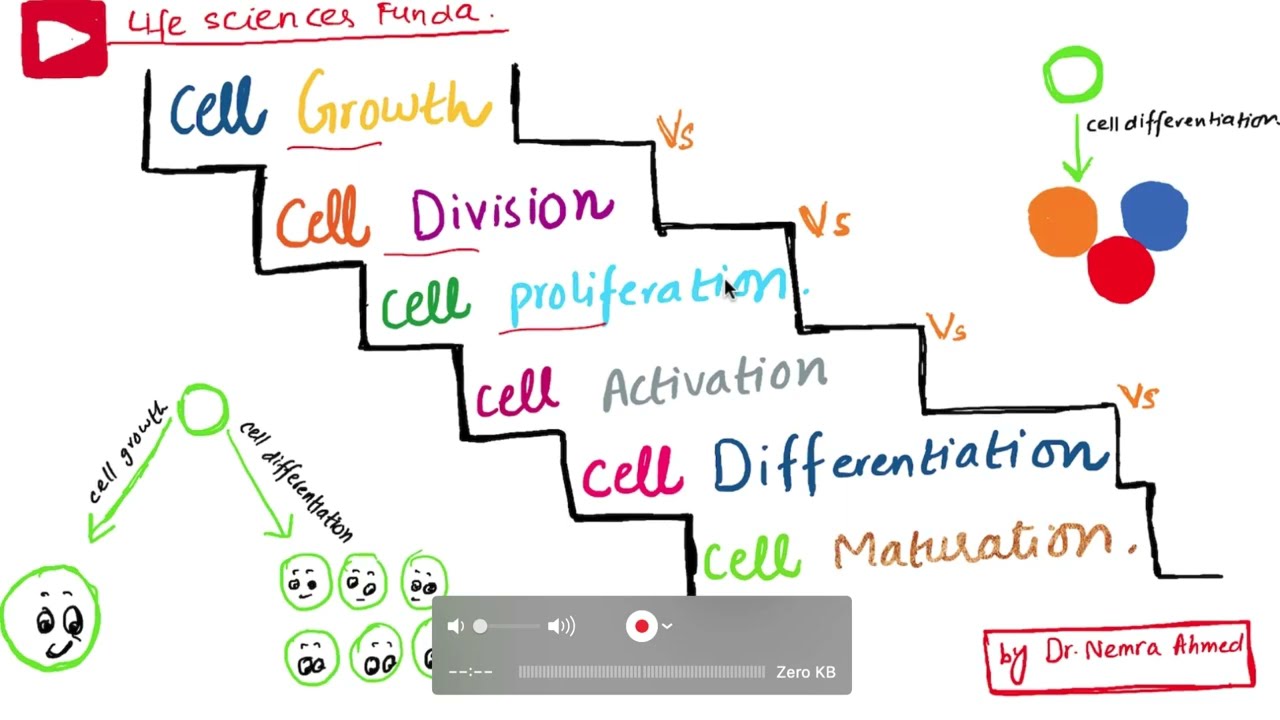 Life sciences Funda.
Cell Growth
Vs
cell differentiation
Cell Division
Vs
cell proliferation.
Vs
cell Activation
Vs
cell growth
cell differentiation
cell Differentiation
cell Maturation.
by Dr. Nemra Ahmed
--:--
Zero KB